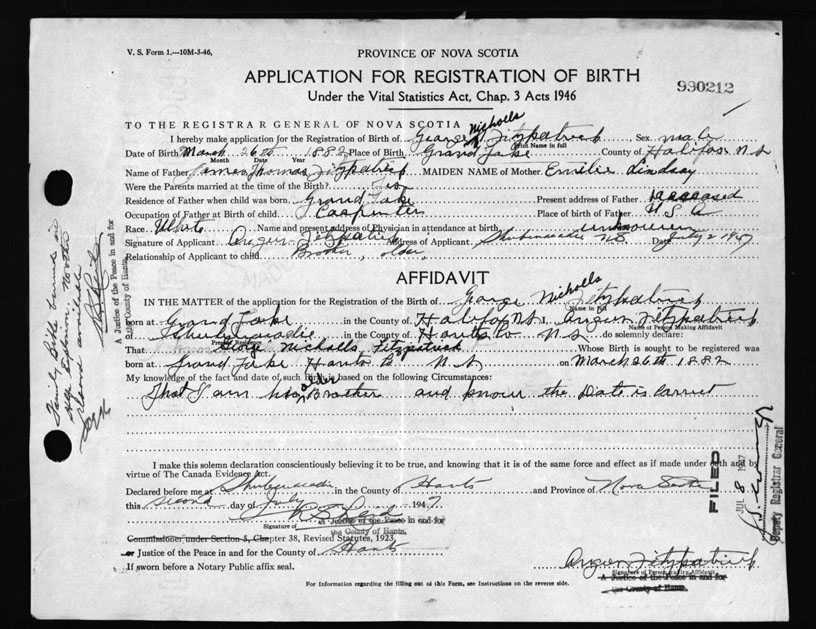 V. S. Form 1.—10M-3-46,
PROVINCE OF NOVA SCOTIA
APPLICATION FOR REGISTRATION OF BIRTH
Under the Vital Statistics Act, Chap. 3 Acts 1946
990212
TO THE REGISTRAR GENERAL OF NOVA SCOTIA
I hereby make application for the Registration of Birth of George Nicholls Fitzpatrick Sex male
Print Name in full
Date of Birth March 26th 1882 Place of Birth Grand Lake County of Halifax N S
Month Date Year
Name of Father James Thomas Fitzpatrick MAIDEN NAME of Mother Emilie Lindsay
Were the Parents married at the time of Birth? Yes
Residence of Father when child was born. Grand Lake Present address of Father deceased
Occupation of Father at Birth of child Carpenter Place of birth of Father U.S.A
Race White Name and present address of Physician in attendance at birth unknown
Signature of Applicant Angus Fitzpatrick Address of Applicant Shubenacadie N.S. Date July 2 1947
Relationship of Applicant to child Brother, older
AFFIDAVIT
IN THE MATTER of the application for the Registration of Birth of George Nicholls Fitzpatrick
Name in full
born at Grand Lake in the County of Halifax N S I Angus Fitzpatrick
Name of Person Making Affidavit
of Shubenacadie in the County of Hants Co N S do solemnly declare:
Present Residence
That George Nicholls Fitzpatrick Whose Birth is sought to be registered was
born at Grand Lake Hants N S on March 26th 1882
My knowledge of the fact and date of such Birth is based on the following Circumstances:
That I am his older Brother and know the Date is correct
I make this solemn declaration conscientiously believing it to be true, and knowing that it is of the same force and effect as if made under oath and by
virtue of The Canada Evidence Act.
Declared before me at Shubenacadie in the County of Hants and Province of Nova Scotia
this second day of July 1947
Signature of
A Justice of the Peace in and for
the County of Hants.
Commissioner under Section 5, Chapter 38, Revised Statutes, 1923
or Justice of the Peace in and for the County of Hants
If sworn before a Notary Public affix seal.
Angus Fitzpatrick
Signature of Person making Affidavit
A Justice of the Peace in and for
the County of Hants.
For Information regarding the filling out of this Form, see Instructions on the reverse side.
Family Bible burned in
North
A Justice of the Peace in and for
the County of Hants.
FILED
JUL 8 1947
Deputy Registrar General